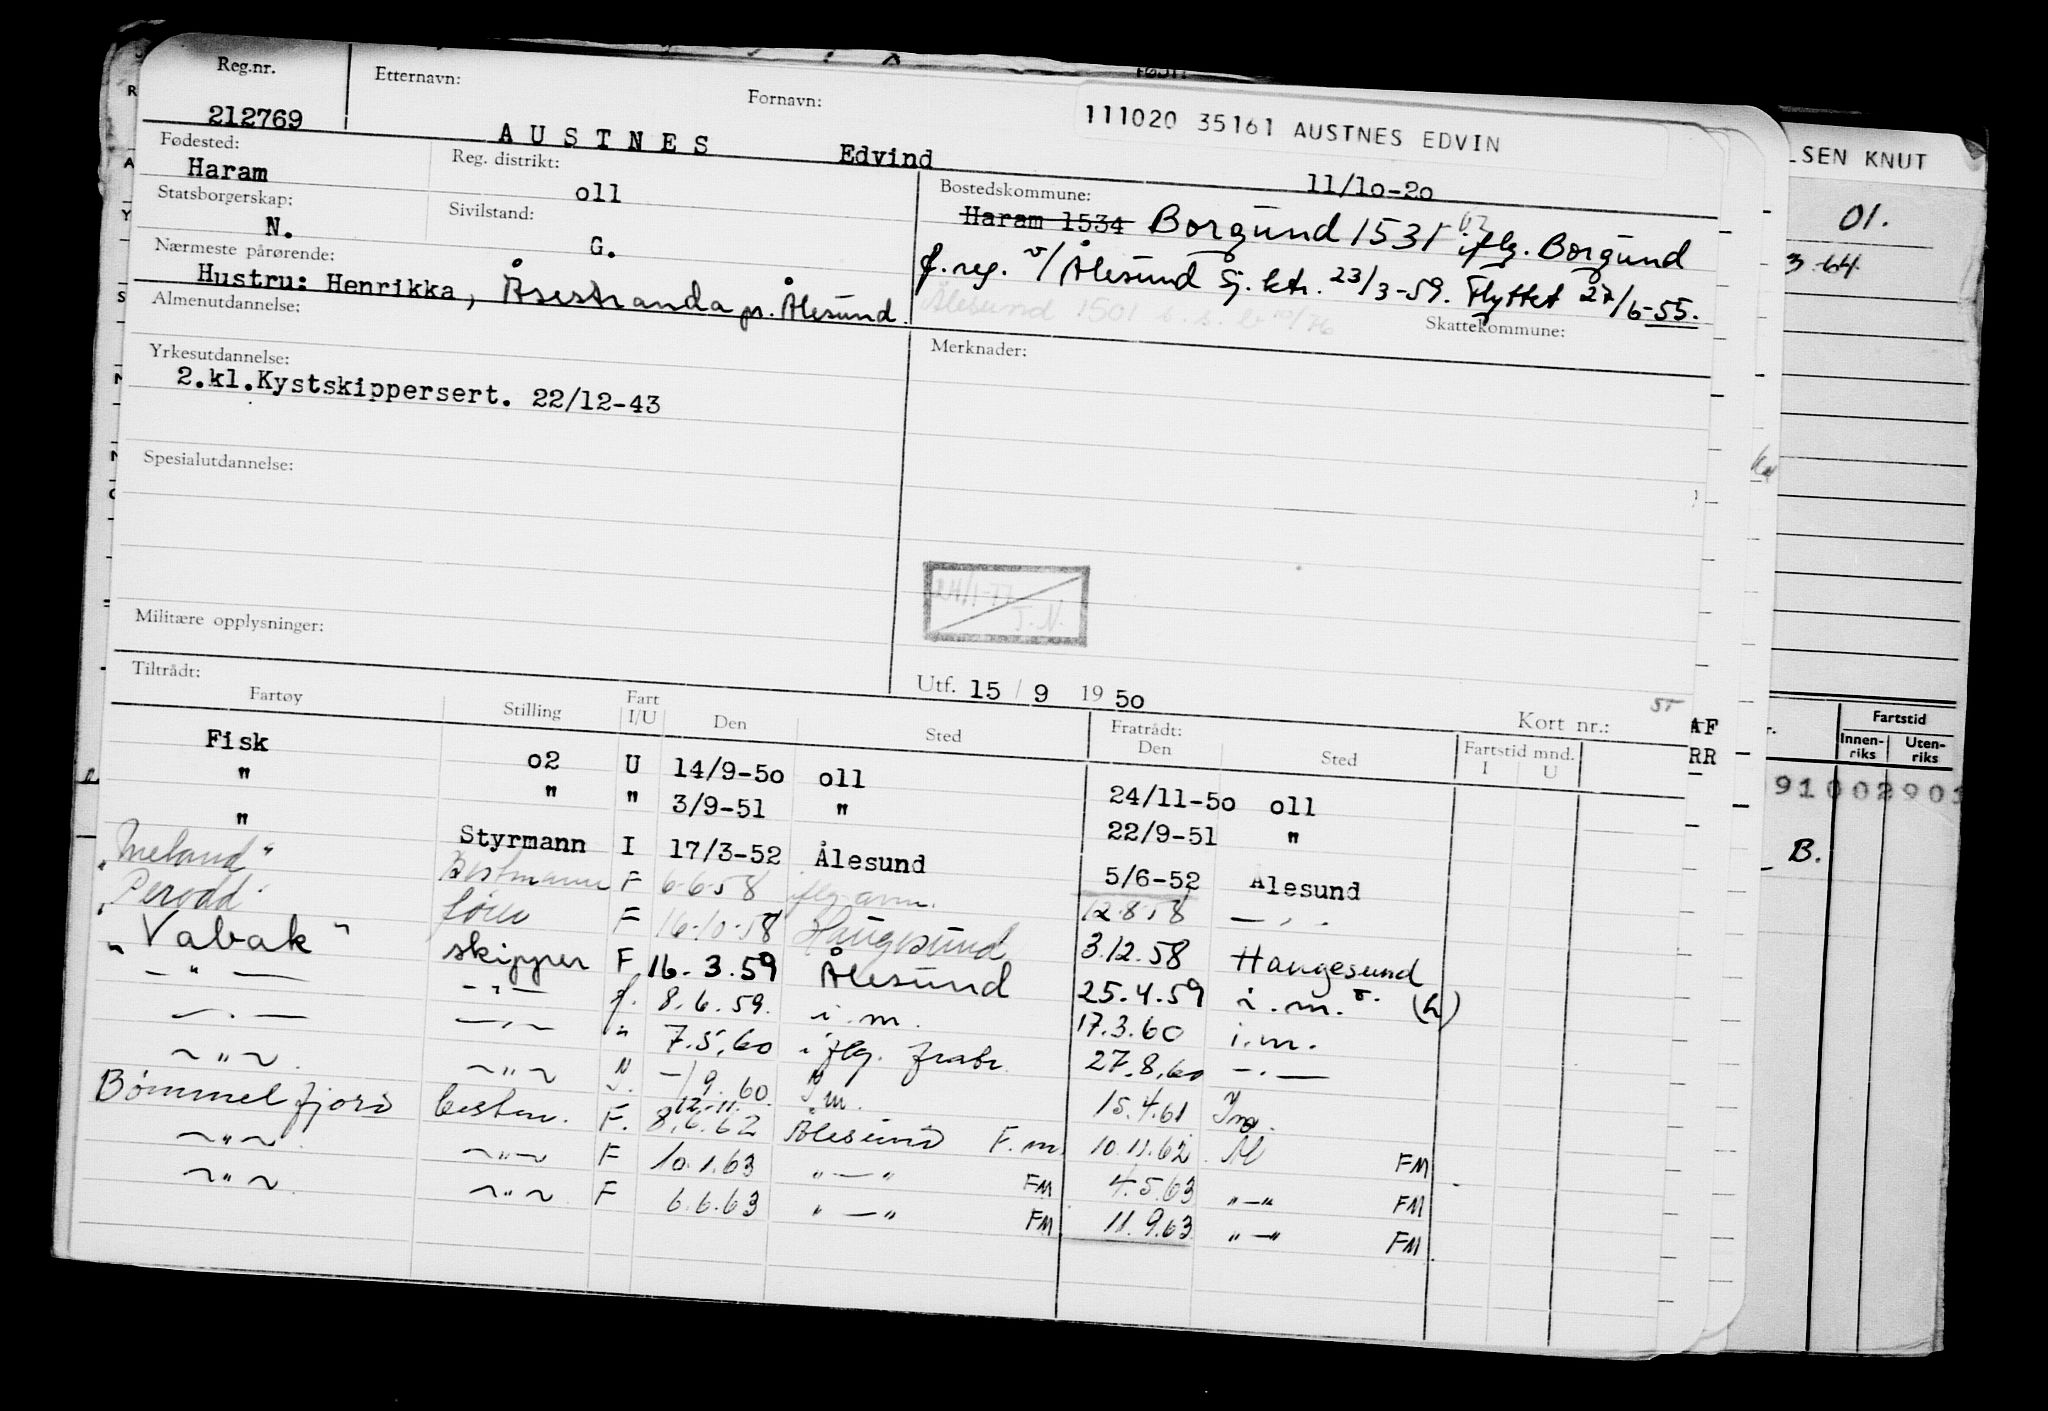 Reg.nr. Etternavn: Fornavn:
111020 35161 AUSTNES EDVIN
212769 AUSTNES Edvind 11/10-20
Fødested: Reg. distrikt: Bostedskommune:
Haram o11 Haram 1534 Borgund 1531 iflg. Borgund
Statsborgerskap: Sivilstand:
N. G. f.reg. v/Ålesund Sj.ktr. 23/3-59. Flyttet 27/6-55.
Nærmeste pårørende:
Hustru: Henrikka, Åsestranda pr. Ålesund.
Ålesund 1501
Skattekommune:
Almenutdannelse: Merknader:
Yrkesutdannelse:
2.kl.Kystskippersert. 22/12-43
Spesialutdannelse:
24/1-77
T.N.
Militære opplysninger:
Utf. 15 / 9 19 50
Kort nr.:
Tiltrådt: Fratrådt:
Fartøy Stilling Fart I/U Den Sted Den Sted Fartstid mnd. I U
Fisk o2 U 14/9-50 o11 24/11-50 o11
" " " 3/9-51 " 22/9-51 "
" Styrmann I 17/3-52 Ålesund 5/6-52 Ålesund
Bestmann F 6-6-58 12.8.58 — " —
"Pervadd" fører F 16-10-58 Haugesund 3.12.58 Haugesund
"Vabak" skipper F 16.3.59 Ålesund 25.4.59 i.m.
— " — — " — f. 8.6.59. i.m. 17.3.60 i.m.
— " — — " — " 7.5.60 iflg. 27.8.60 — " —
— " — — " — 1/9.60 I m. 15.4.61 Im.
Bömmelfjord bestm. F. 12-11. 8.6.62 Ålesund F.m. 10.11.62 Ål FM
— " — — " — F 10.1.63 " — " FM 4.5.63 " — " FM
— " — — " — F 6.6.63 " — " FM 11.9.63 " — " FM
LSEN KNUT
01.
3.64
AF
RR
Fartstid
Innen-riks Uten-riks
B.